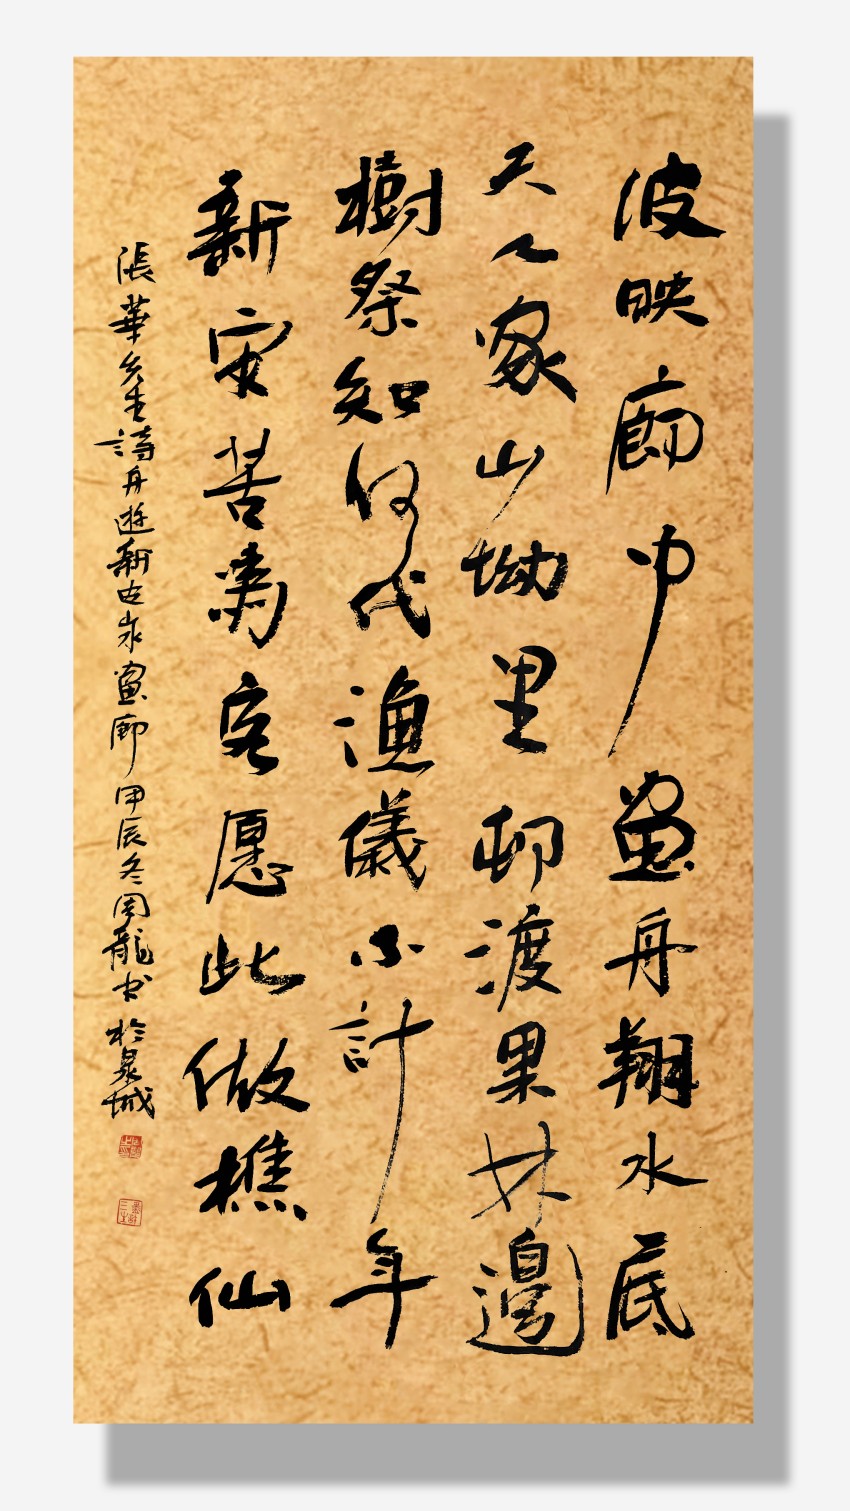 波映廊中畫舟翔水底
天人家山坳里邨渡果林邊
樹祭知何代漁儀不計年
新安苦离客愿此做樵仙
張華先生詩舟遊新畫廊甲辰冬周龍书於泉城